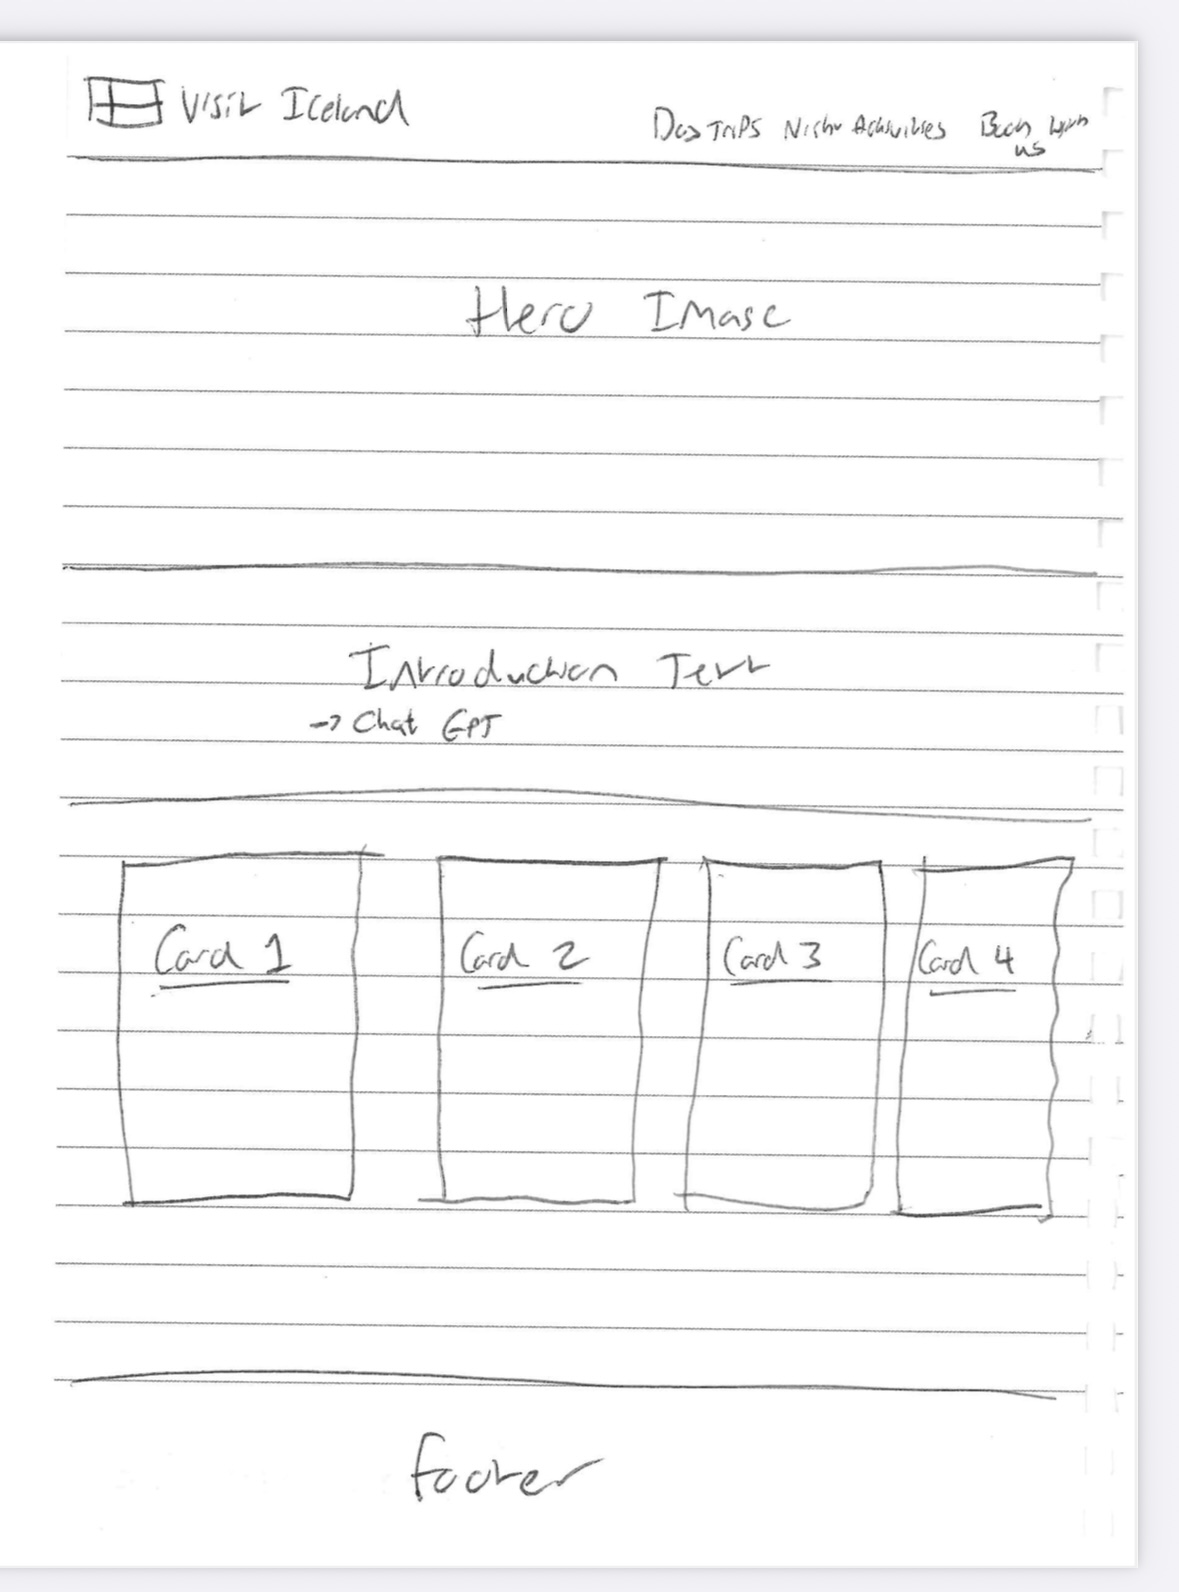 Visit Iceland
Day Trips Night Activities Book with
us
Hero Image
Introduction Text
→ Chat GPT
Card 1 Card 2 Card 3 Card 4
footer